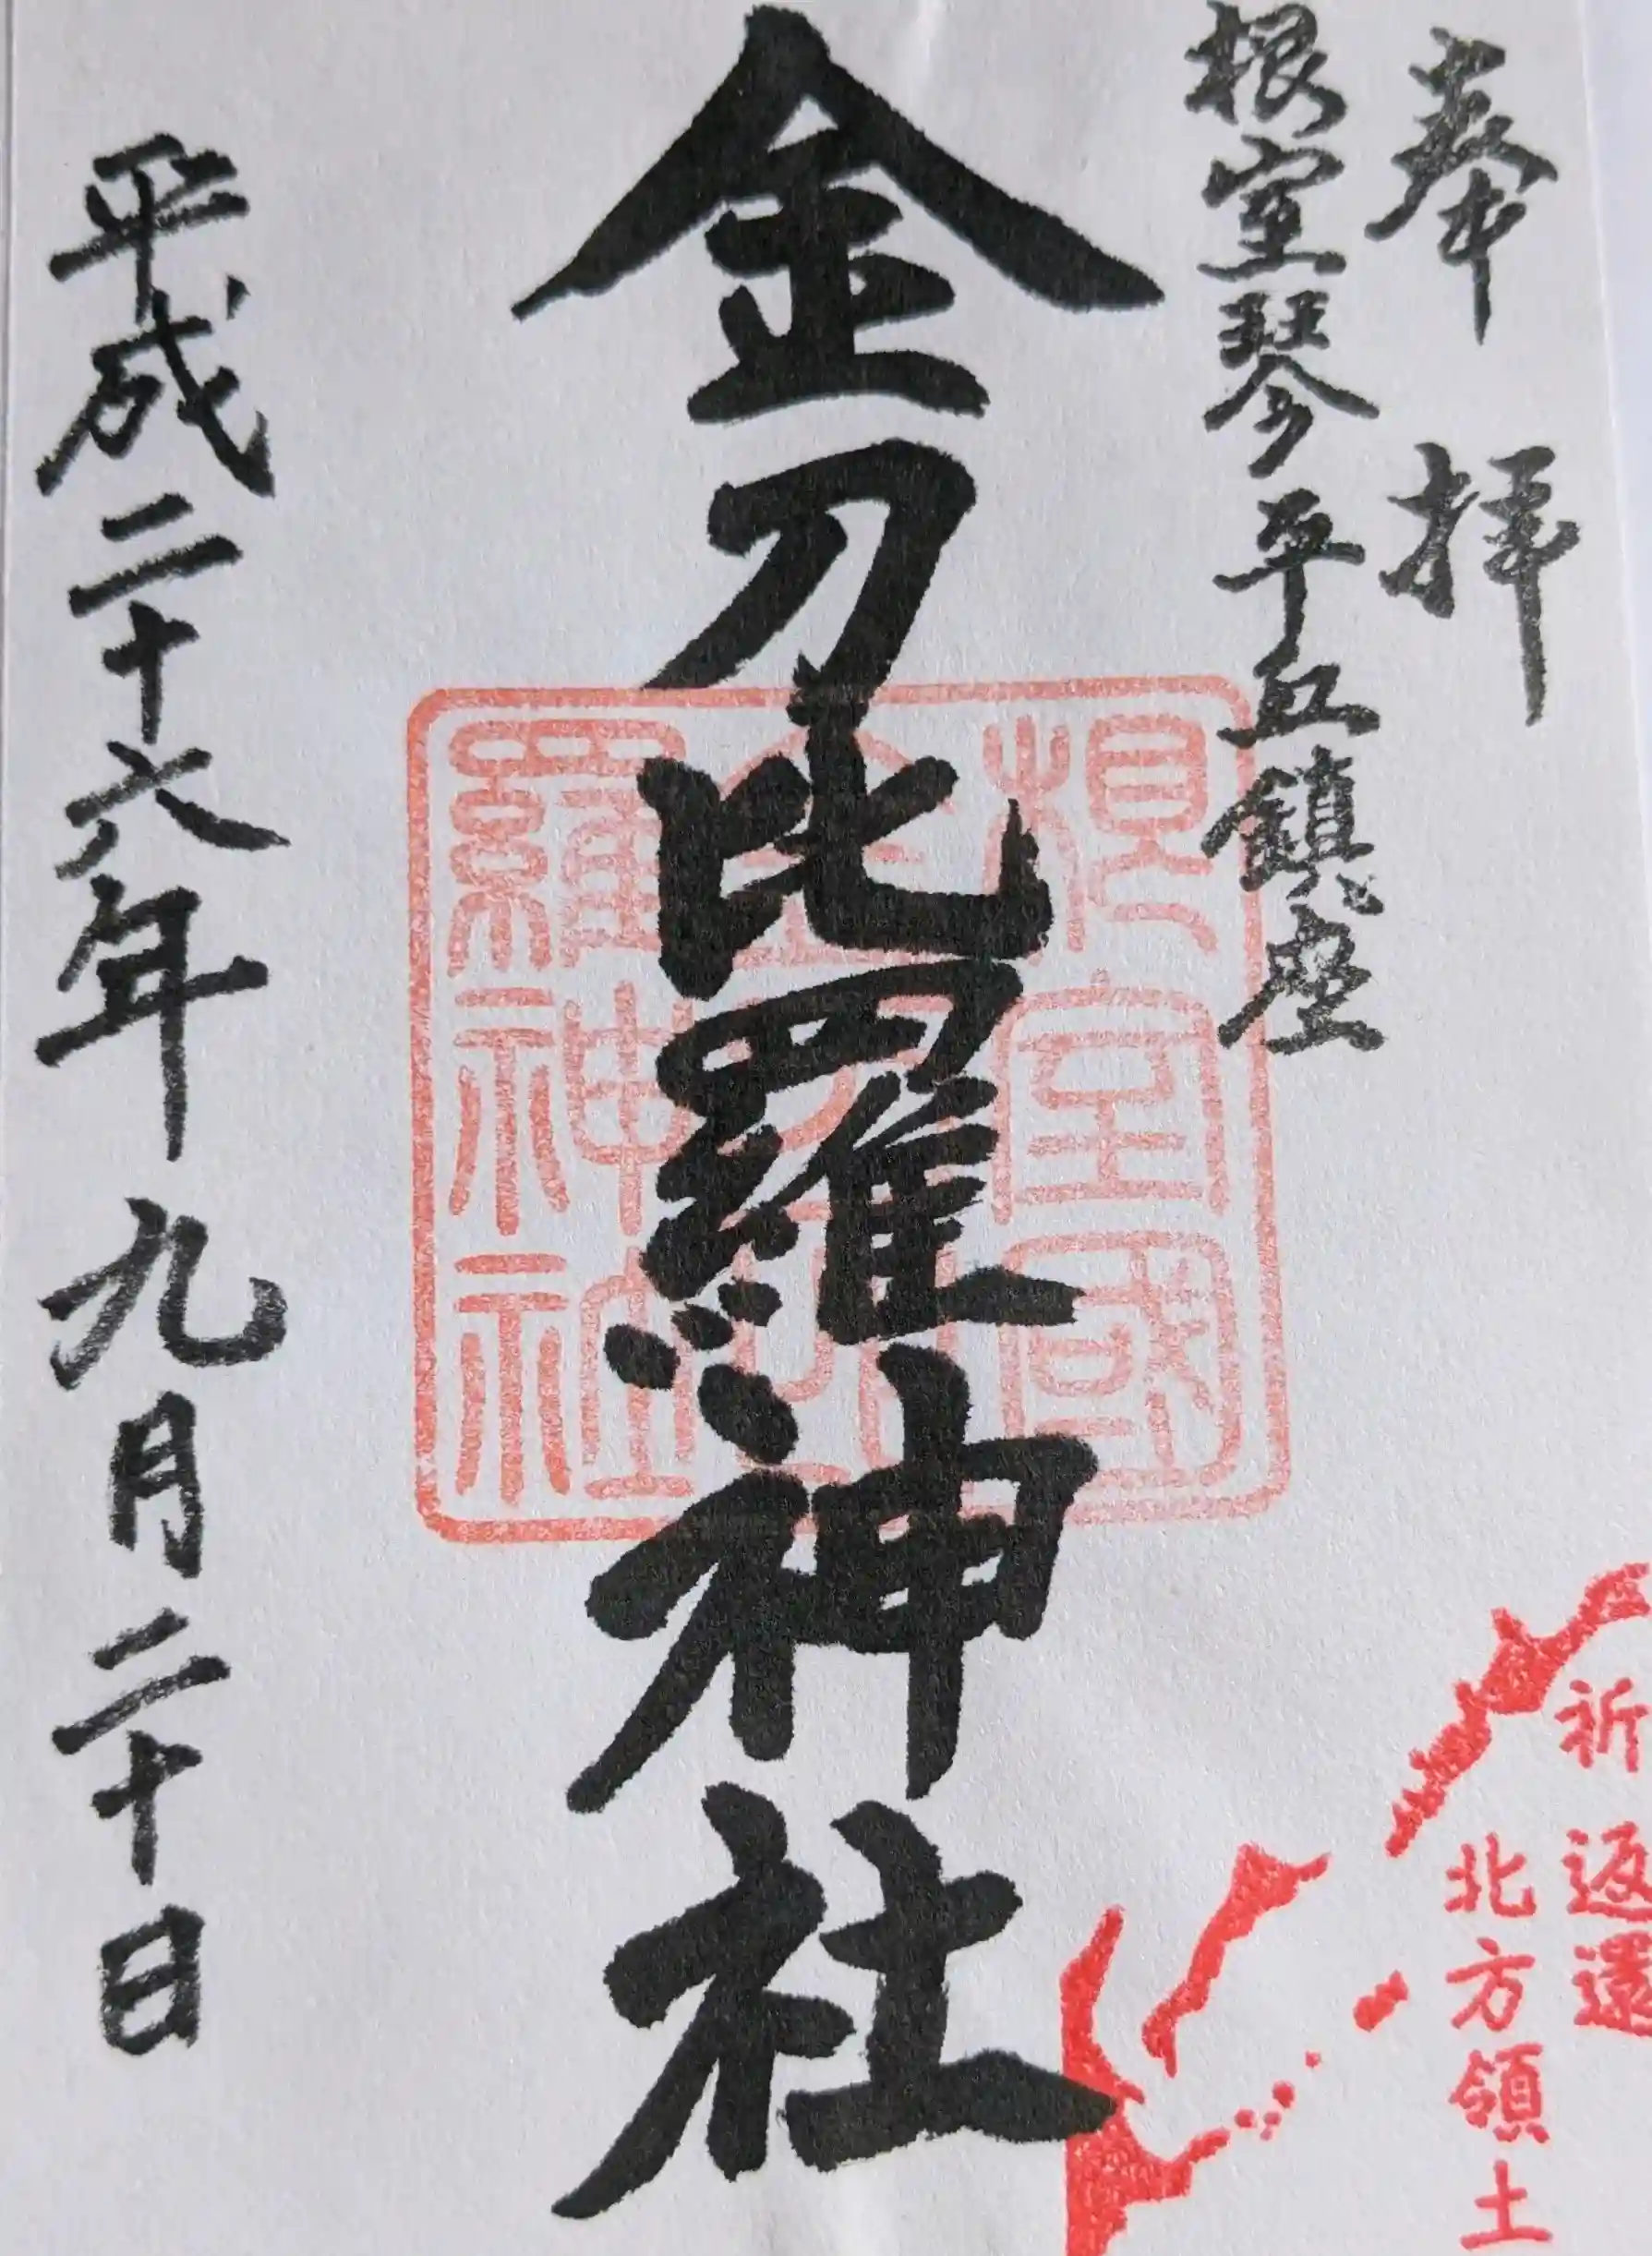 奉拝
根室琴平丘鎮座
金刀比羅神社
平成二十六年九月二十日
根室國
羅神社
祈返還
北方領土